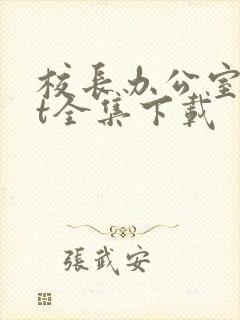 校長办公室
t全集下載
張武安